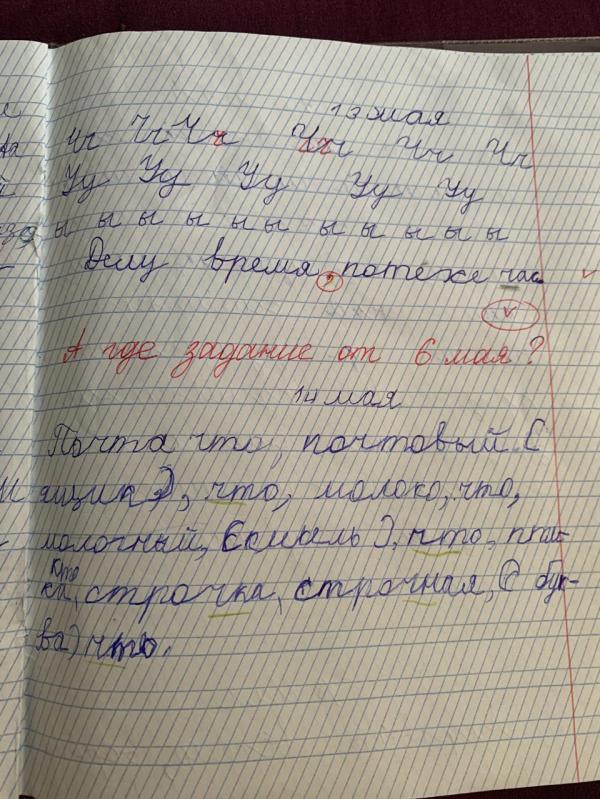 13 мая
Чч Чч Чч Чч Чч Чч
Уу Уу Уу Уу Уу
ы ы ы ы ы ы ы ы ы ы ы
Делу время, потехе час
А где задание от 6 мая?
14 мая
Почта что, почтовый (
ящик), что, молоко, что,
молочный, (кисель), что, пти-
кто
ка, строчка, строчная, (бук-
ва) что.